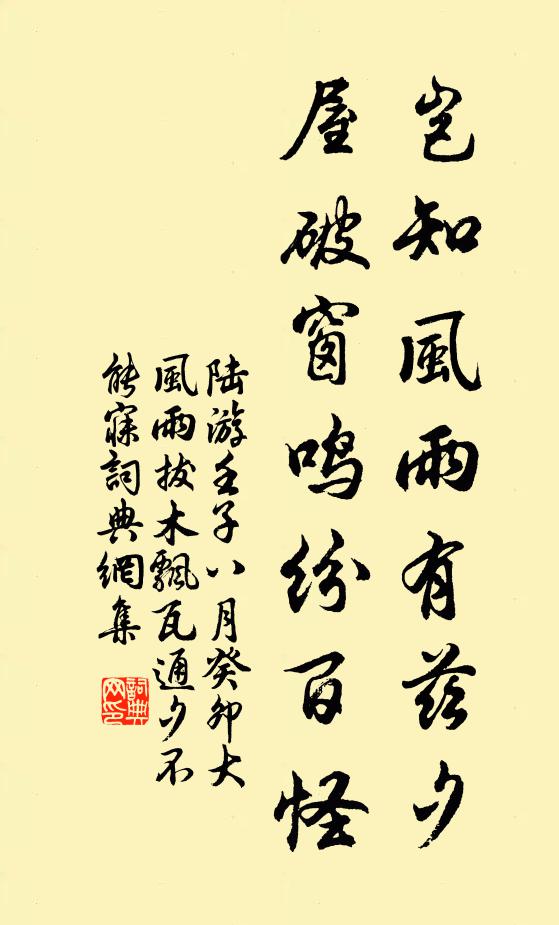 豈知風雨有茲夕
屋破窗鳴紛百怪
陸游壬子八月癸卯大
風雨拔木飄瓦通夕不
能寐詞典網集
詞典
网印